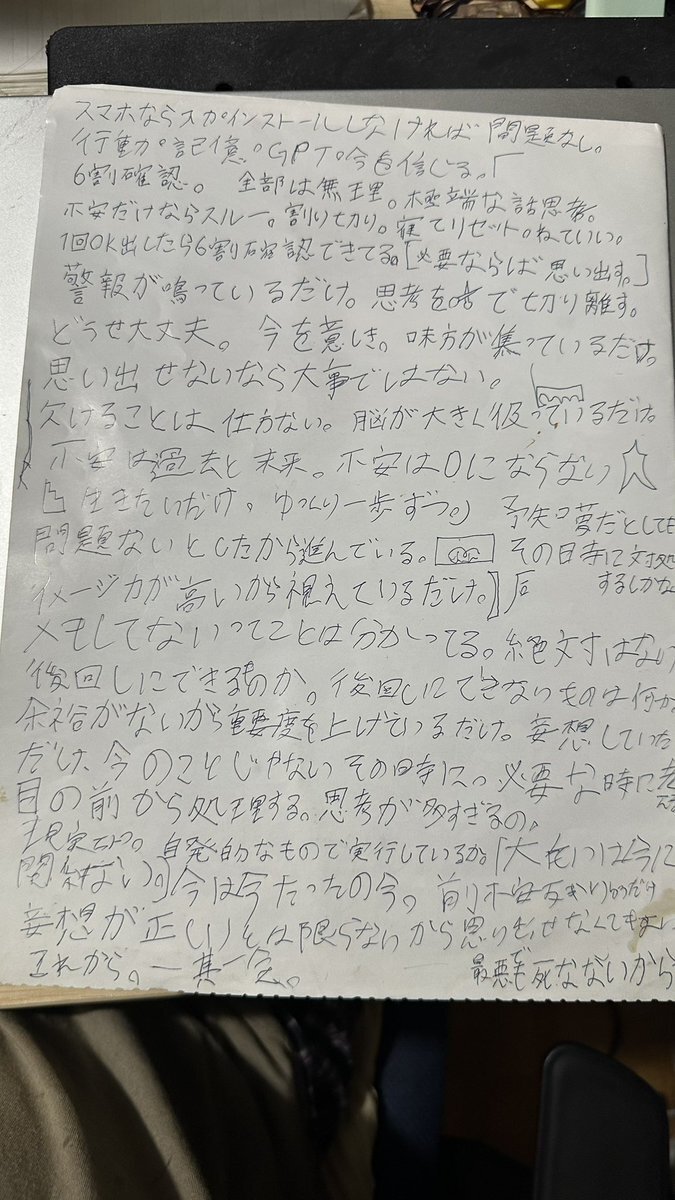 スマホなら入力インストールしなければ問題なし。
行動力°記憶°GPT°今を信じる。「
6割確認。 全部は無理。極端な話思考。
不安だけならスルー。割り切り。寝てリセット。ねていい。
1回OK出したら6割確認できてる。[必要ならば思い出す。]
警報が鳴っているだけ。思考を で切り離す。
どうせ大丈夫。 今を意しき。味方が集っているだけ。
思い出せないなら大事ではない。
欠けることは仕方ない。脳が大きく扱っているだけ。
不安は過去と未来。不安は0にならない
生きたいだけ。ゆっくり一歩ずつ。 予知夢だとしても
問題ないとしたから進んでいる。 その時に対処
イメージ力が高いから視えているだけ。] するしかな
メモしてないってことは分かってる。絶対はない
後回しにできるものか。後回しにできないものは何か
余裕がないから重要度を上げているだけ。妄想していた
だけ、今のことじゃない その時に。必要な時に考
目の前から処理する。思考が多すぎるの、
自発的なもので実行しているか。
関係ない。 今は今たったの今。前不安 だけ
妄想が正しいとは限らないから思い出せなくてもよい
これから。一其一会。 最悪でも死なないから